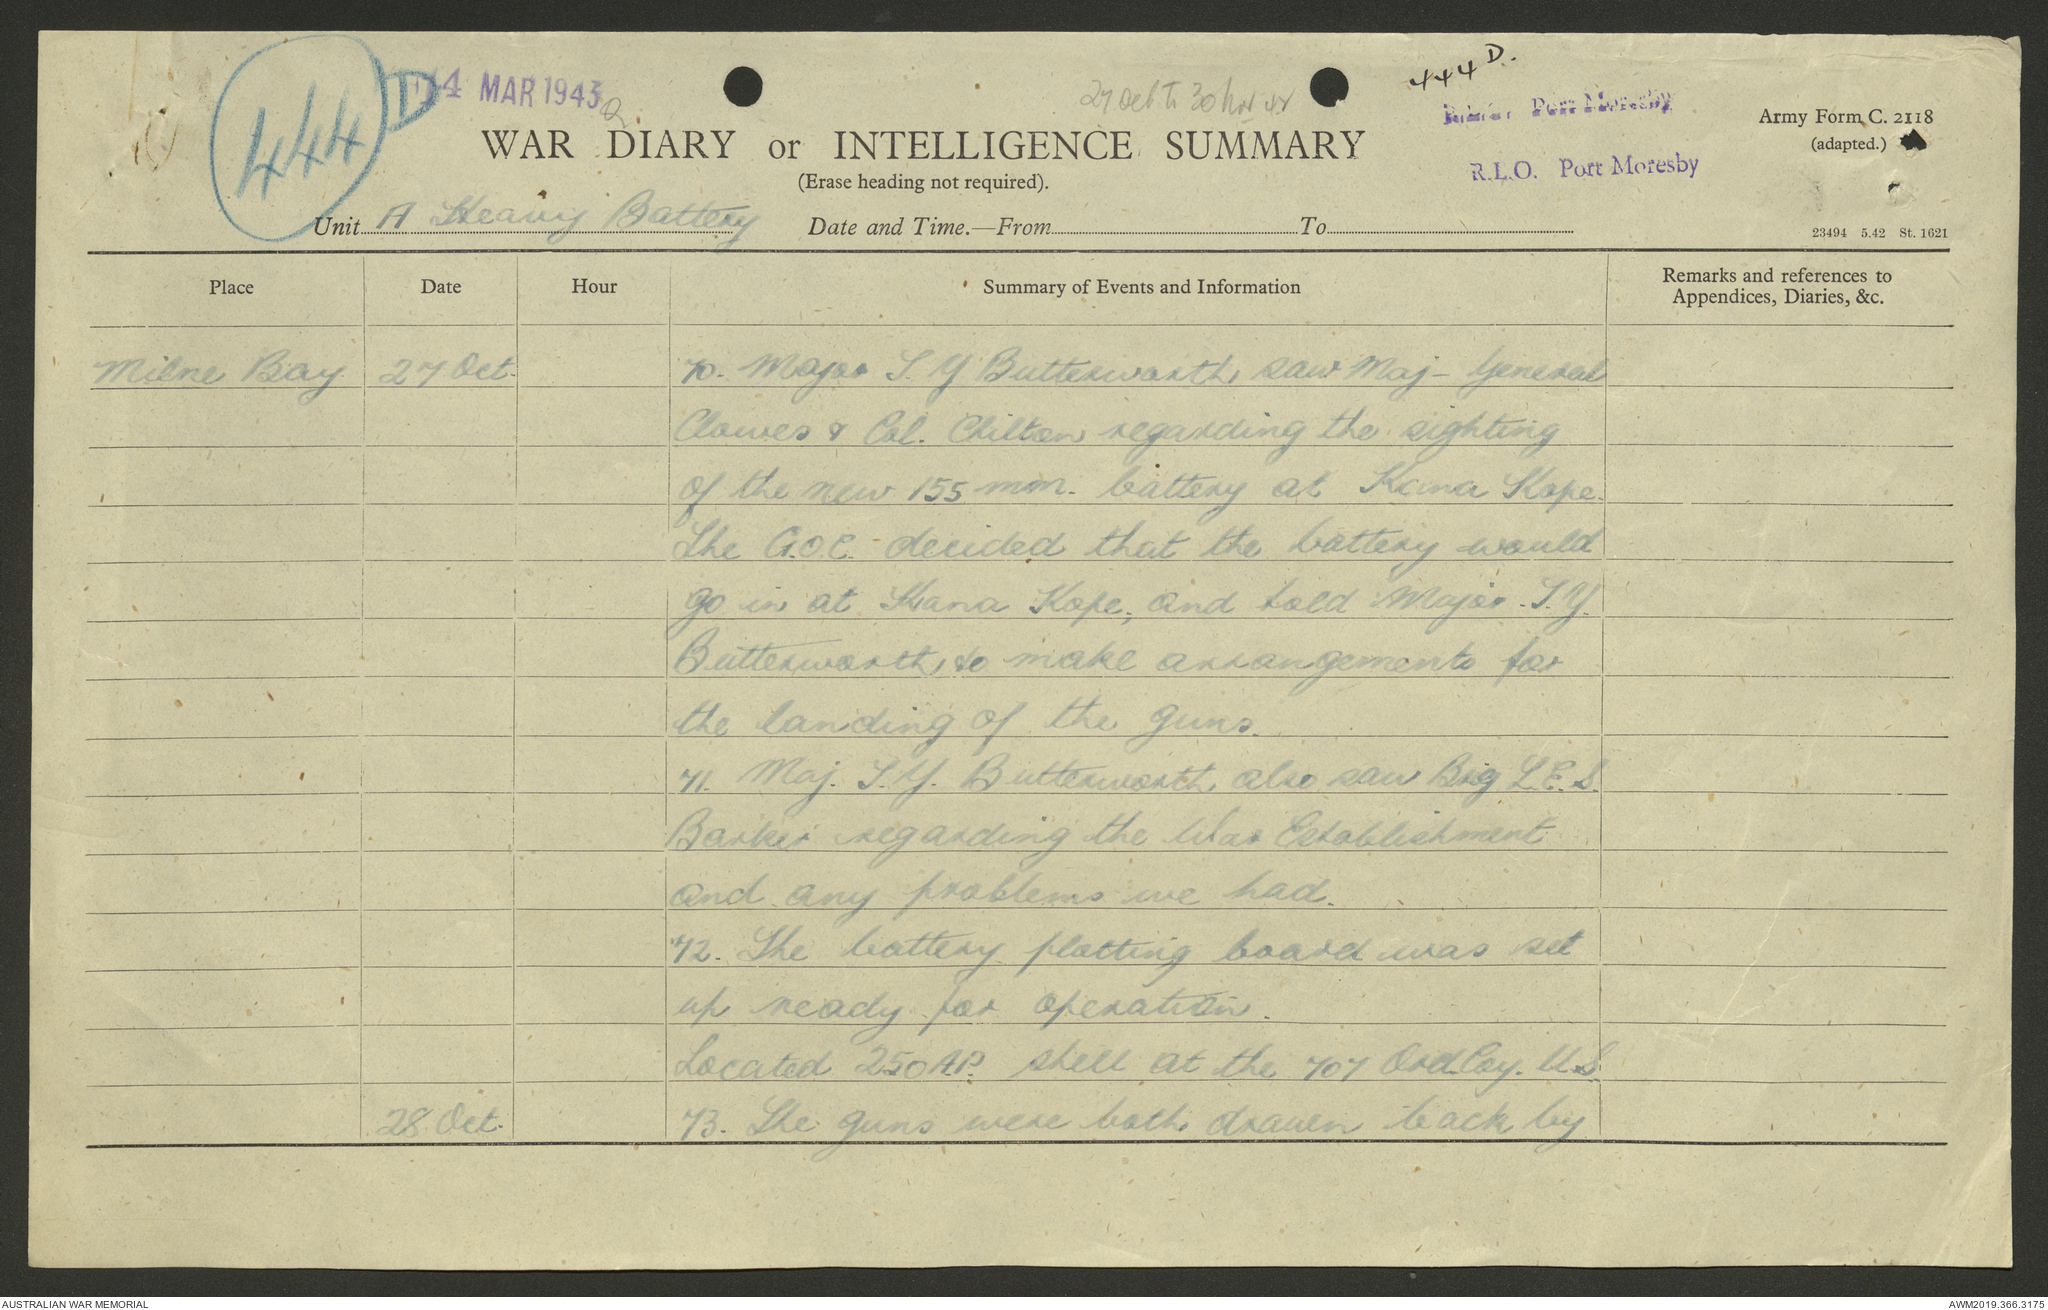 444 D
14 MAR 1943
27 Oct to 30 Nov 42
444 D.
Port Moresby
R.L.O. Port Moresby
Army Form C. 2118
(adapted.)
WAR DIARY or INTELLIGENCE SUMMARY
(Erase heading not required).
Unit A Heavy Battery Date and Time.—From To
23494 5.42 St. 1621
Place Date Hour Summary of Events and Information Remarks and references to
Appendices, Diaries, &c.
Milne Bay 27 Oct. 70. Major S. Y Butterworth saw Maj - General
Clowes & Col. Chilton regarding the sighting
of the new 155 mm. battery at Kana Kope.
The G.O.C. decided that the battery would
go in at Kana Kope, and told Major. S. Y.
Butterworth to make arrangements for
the landing of the guns.
71. Maj. S. Y. Butterworth also saw Brig L. E. S.
Barker regarding the War Establishment
and any problems we had.
72. The battery plotting board was set
up ready for operation.
Located 250 A.P. shell at the 707 Ord. Coy. U.S.
28 Oct. 73. The guns were both drawn back by
AUSTRALIAN WAR MEMORIAL
AWM2019.366.3175